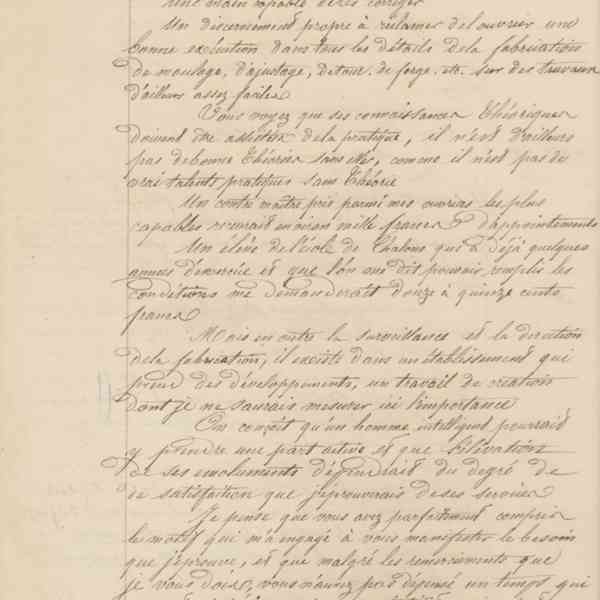 une main capable de les corriger
Un discernement propre à réclamer de l'ouvrier une
bonne exécution dans tous les détails de la fabrication
de moulage, d'ajustage, de tour, de forge, etc. sur des travaux
d'ailleurs assez faciles
Vous voyez que ses connaissances théoriques
doivent être assistées de la pratique, il n'est d'ailleurs
pas de bonne théories sans elles, comme il n'est pas de
vrai talents pratiques sans théorie
Un contre maitre pris parmi mes ouvriers les plus
capables recevrait environ mille francs d'appointements
Un élève de l'école de Chalons qui a déjà quelques
années d'exercice et que l'on me dit pouvoir remplir les
conditions me demanderait douze à quinze cents
francs
Mais en outre la surveillance et la direction
de la fabrication, il existe dans un établissement qui
prend des développements, un travail de création
dont je ne saurais mesurer ici l'importance
On conçoit qu'un homme intelligent pourrait
y prendre une part active et que l'élévation
de ses émoluments dépendrait du degré de
de satisfaction que j'éprouverais de ses services
Je pense que vous avez parfaitement compris
le motif qui m'a engagé à vous manifester le besoin
que j'éprouve, et que malgré les remerciements que
je vous dois, vous n'aurez pas dépensé un temps qui